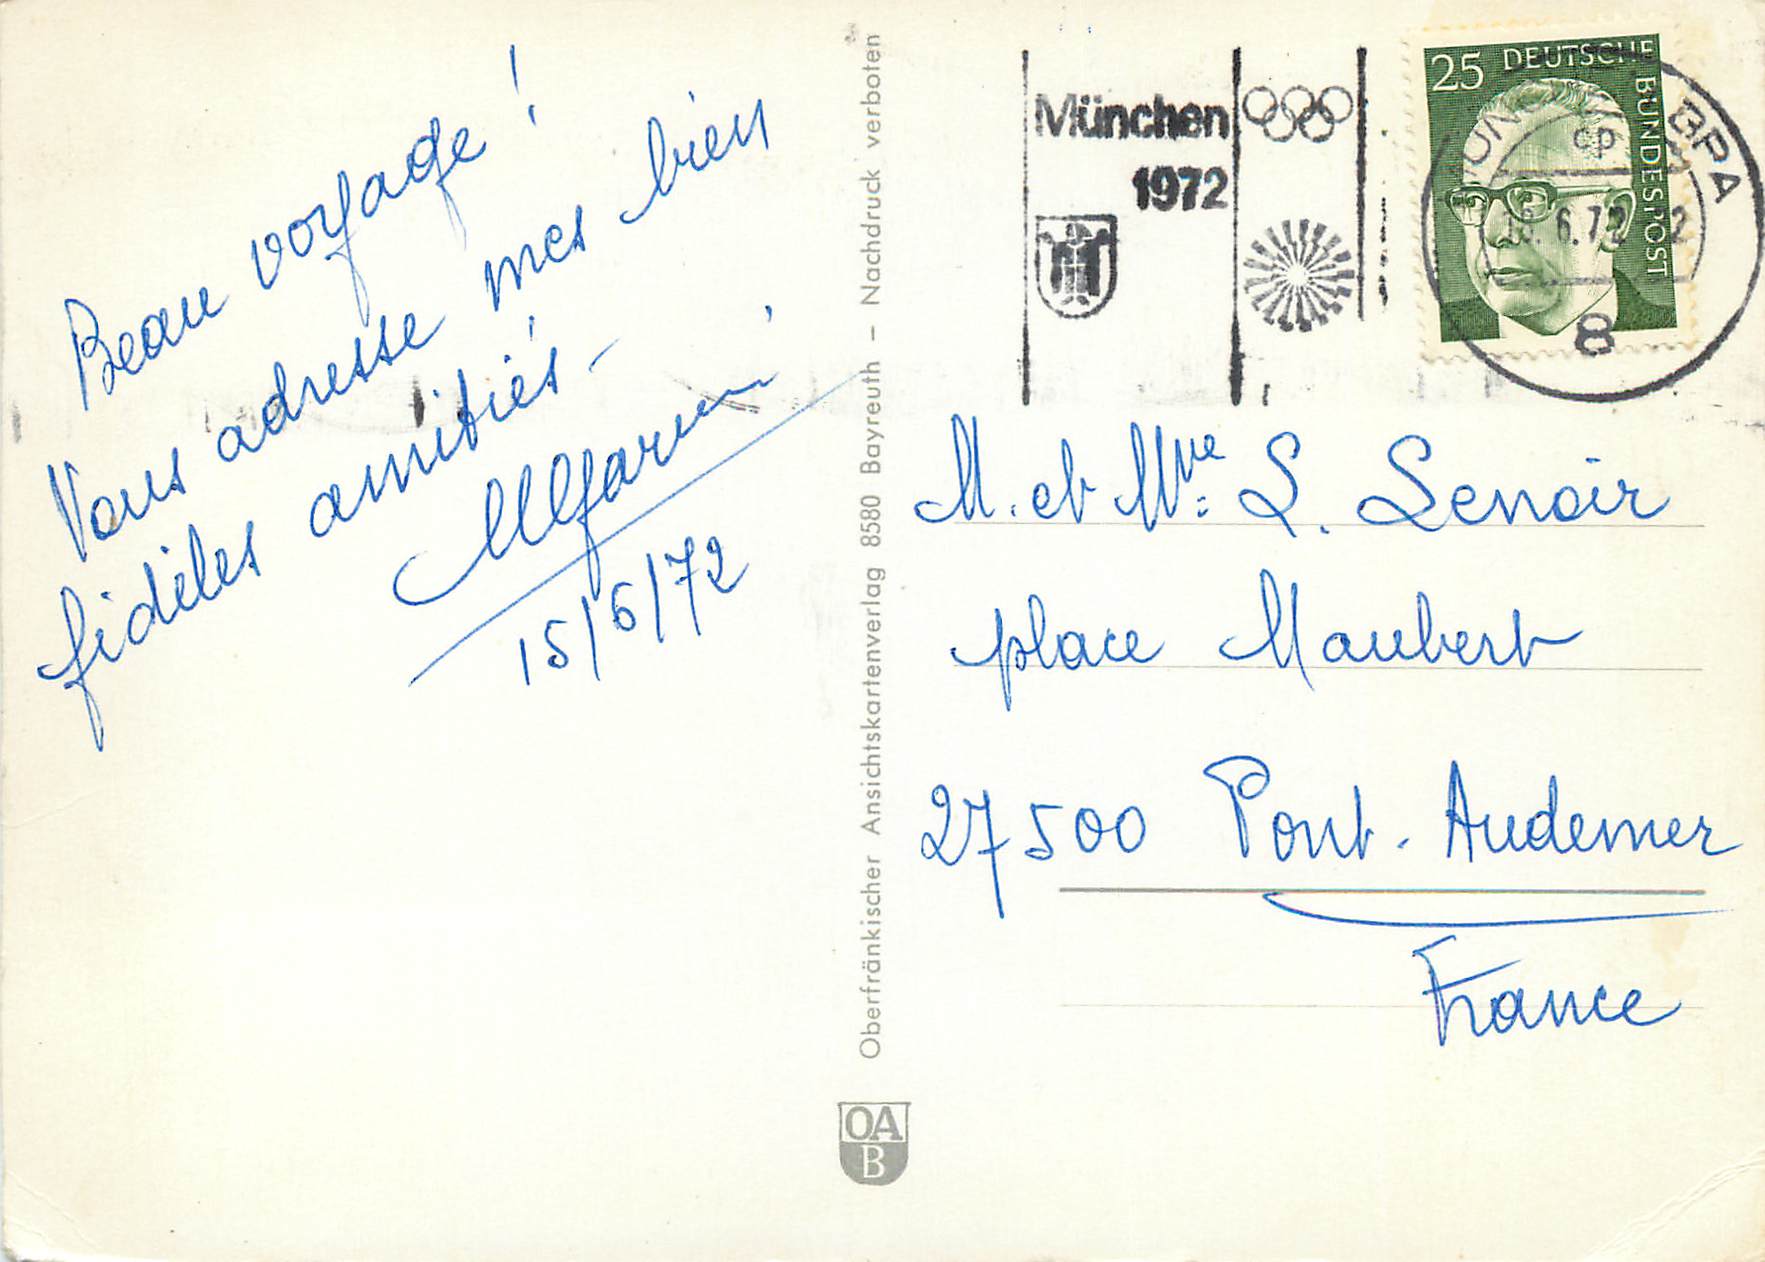 Beau voyage !
Vous adresse mes bien
fidèles amitiés -
15/6/72
Oberfränkischer Ansichtskartenverlag 8580 Bayreuth – Nachdruck verboten
OA
B
München
1972
25 DEUTSCHE
BUNDESPOST
BPA
cp
6.72
8
M. et Mme L. Lenoir
place Maubert
27500 Pont-Audemer
France